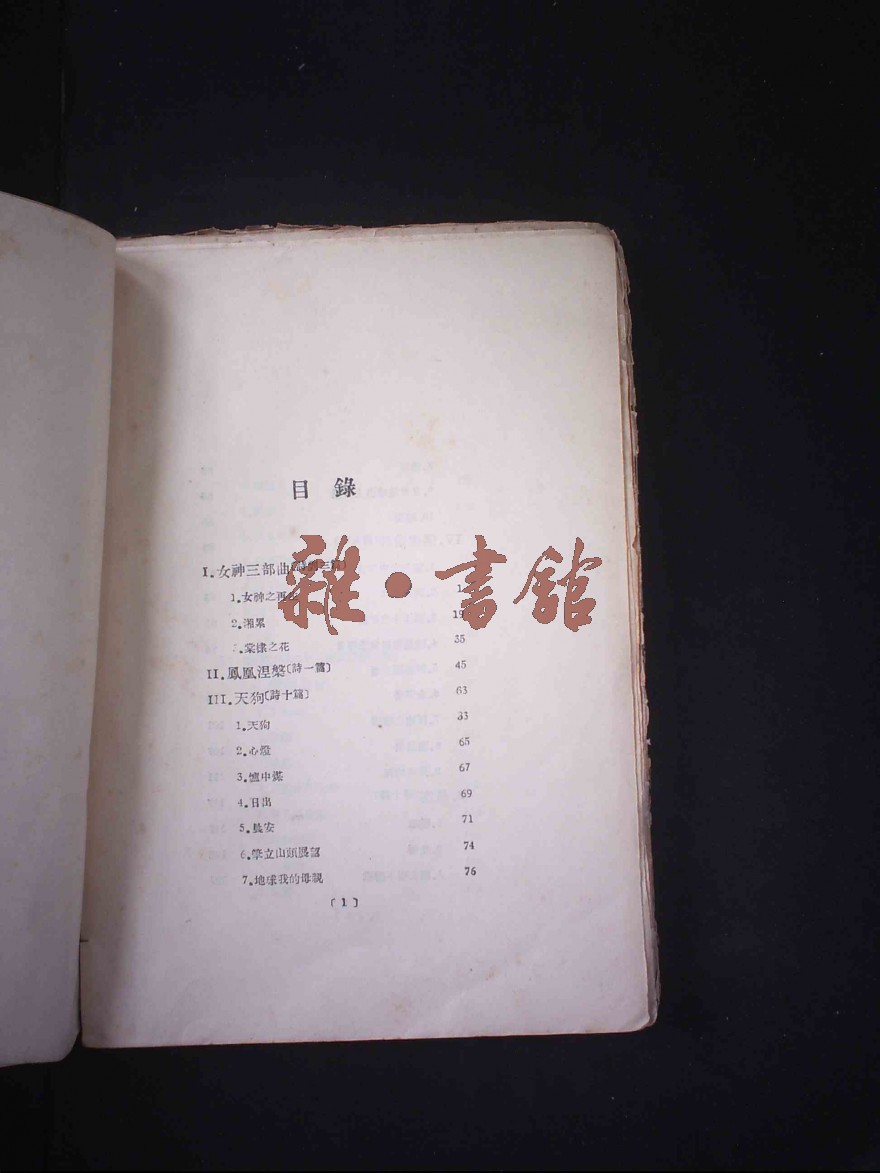 目錄
I.女神三部曲
1.女神之再 1
2.湘累 19
3.棠棣之花 35
II.鳳凰涅槃〔詩一篇〕 45
III.天狗〔詩十篇〕 63
1.天狗 33
2.心燈 65
3.爐中煤 67
4.日出 69
5.晨安 71
6.筆立山頭展望 74
7.地球我的母親 76
〔1〕
雜·書館